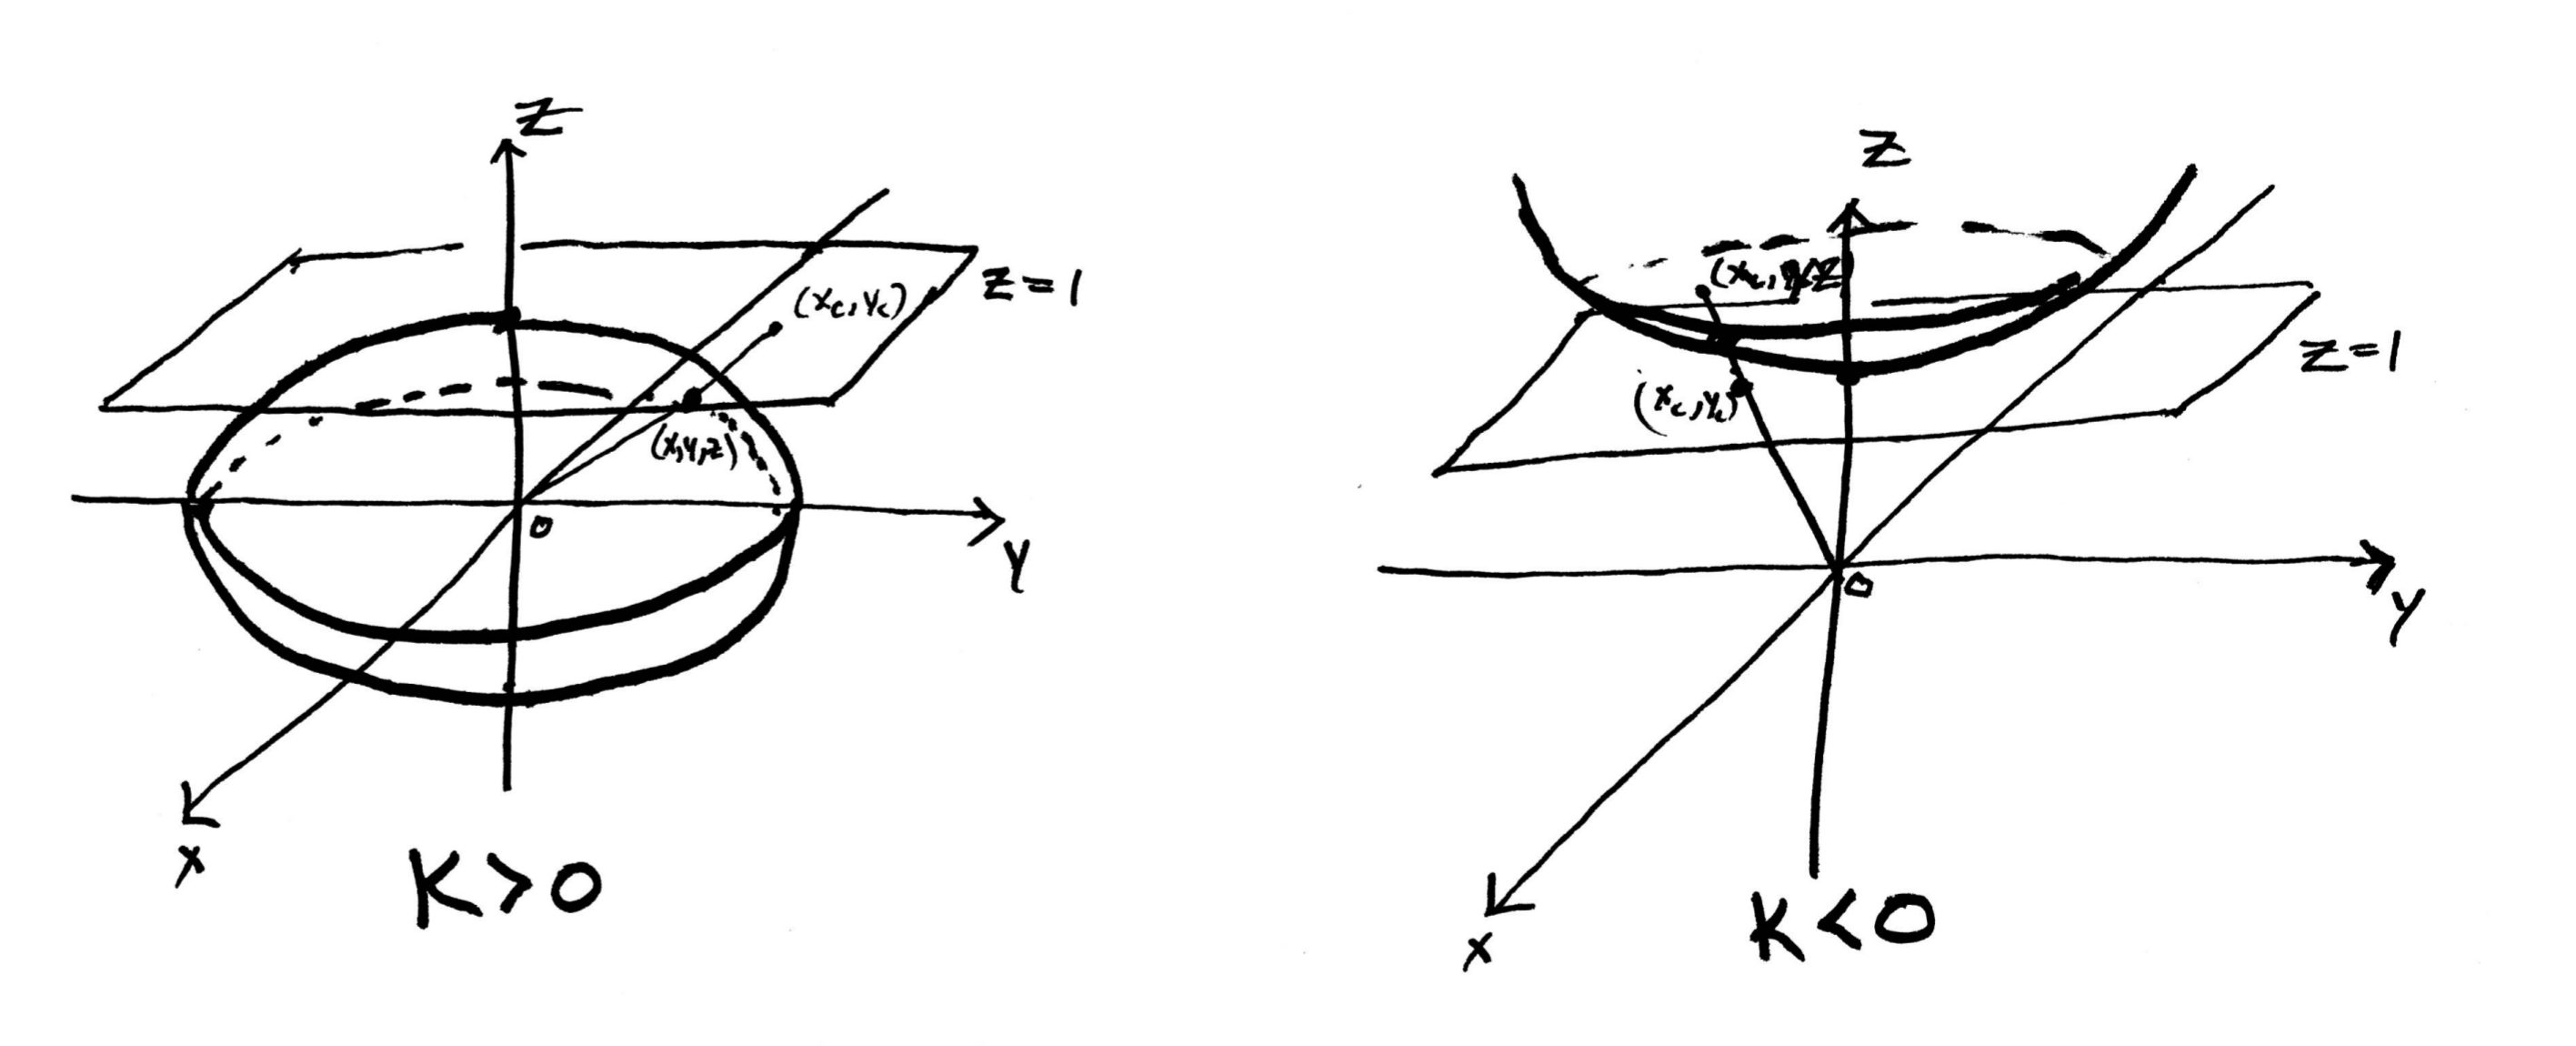 Z
Z=1
(xc, yc)
(x,y,z)
O
Y
X
K>0
Z
Z=1
(xc, yc)
O
Y
X
K<0